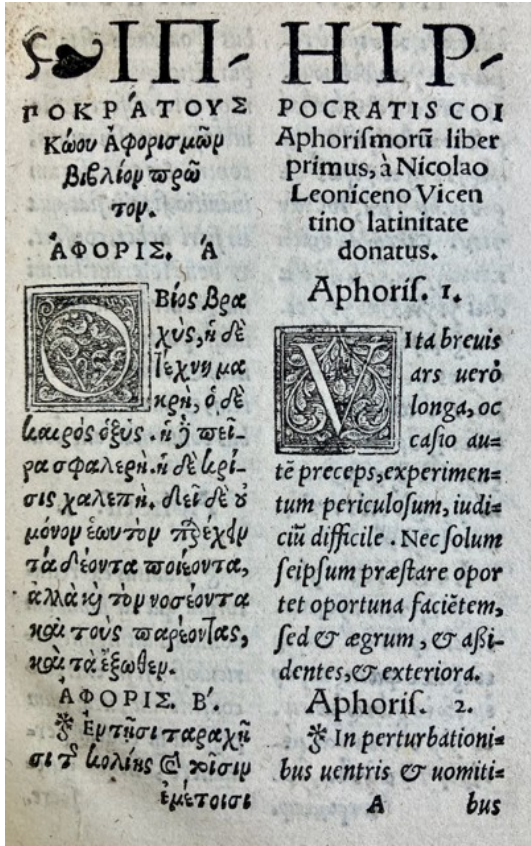 ἹΠ-
ΠΟΚΡΆΤΟΥΣ
Κώου Ἀφορισμῶν
βιβλίον πρῶ
τον.
ἈΦΟΡΙΣ. Ά
Ὁ Βίος βρα
χὺς, ἡ δὲ
τέχνη μα
κρὴ, ὁ δὲ
καιρὸς ὀξὺς. ἡ δὲ πεῖ-
ρα σφαλερὴ. ἡ δὲ κρί-
σις χαλεπὴ. δεῖ δὲ οὐ
μόνον ἑωυτὸν παρέχειν
τὰ δέοντα ποιέοντα,
ἀλλὰ καὶ τὸν νοσέοντα
καὶ τοὺς παρέοντας,
καὶ τὰ ἔξωθεν.
ἈΦΟΡΙΣ. Β'.
Ἐν τῇσι ταραχῇ
σι τῆς κοιλίης καὶ
ἐμέτοισι
HIP-
POCRATIS COI
Aphoriſmorũ liber
primus, à Nicolao
Leoniceno Vicen
tino latinitate
donatus.
Aphoriſ. 1.
VIta breuis
ars uerò
longa, oc
caſio au-
tẽ preceps, experimen-
tum periculoſum, iudi-
ciũ difficile. Nec ſolum
ſeipſum præſtare opor
tet oportuna faciẽtem,
ſed & ægrum, & aßi-
dentes, & exteriora.
Aphoriſ. 2.
In perturbationi-
bus uentris & uomiti-
A bus